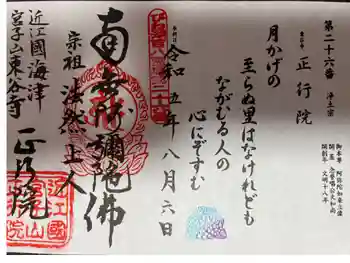 第二十六番 浄土宗
正行院
月かげの
至らぬ里はなけれども
ながむる人の
心にぞすむ
御本尊 阿弥陀如来立像
開創年 文明十八年
令和五年八月六日
南無阿彌陀佛
宗祖 法然上人
近江國海津
宮子山東谷寺
正行院